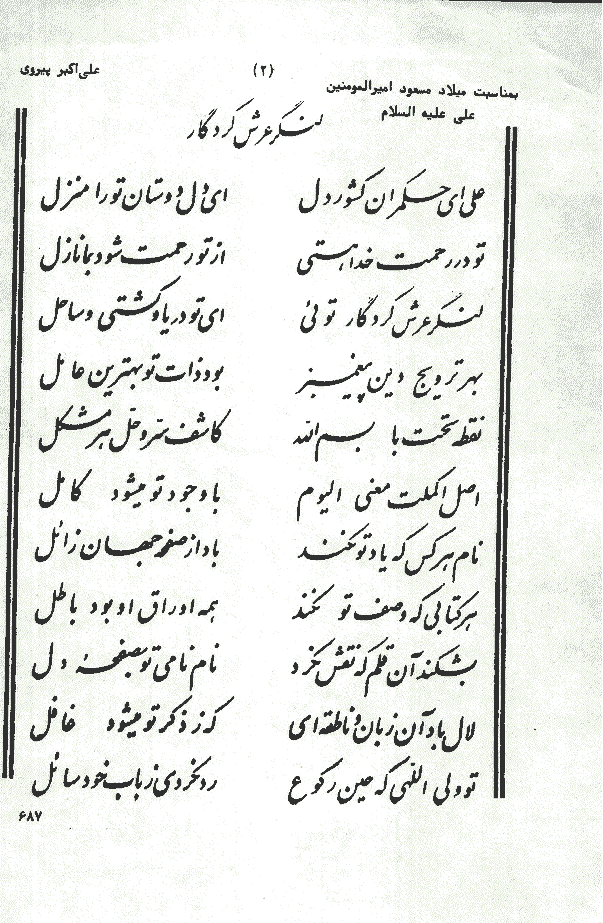 علی‌اکبر پیروی
(۲)
بمناسبت میلاد مسعود امیرالمومنین
علی علیه السلام
لنگر عرش کردگار
علی ای حکمران کشور دل ای دل دوستان تو را منزل
تو در رحمت خدا هستی از تو رحمت شود بما نازل
لنگر عرش کردگار توئی ای تو دریا و کشتی و ساحل
بهر ترویج دین پیغمبر بود ذات تو بهترین عامل
نقطه تحت با بسم الله کاشف سر و حل هر مشکل
اصل اکملت معنی الیوم با وجود تو میشود کامل
نام هر کس که یاد تو نکند باد از صفحه جهان زائل
هر کتابی که وصف تو نکند همه اوراق او بود باطل
بشکند آن قلم که نقش نکرد نام نامی تو بصفحه دل
لال باد آن زبان و ناطقه ای که ز ذکر تو میشود غافل
تو ولی اللهی که حین رکوع رد نکردی ز باب خود سائل
۶۸۷